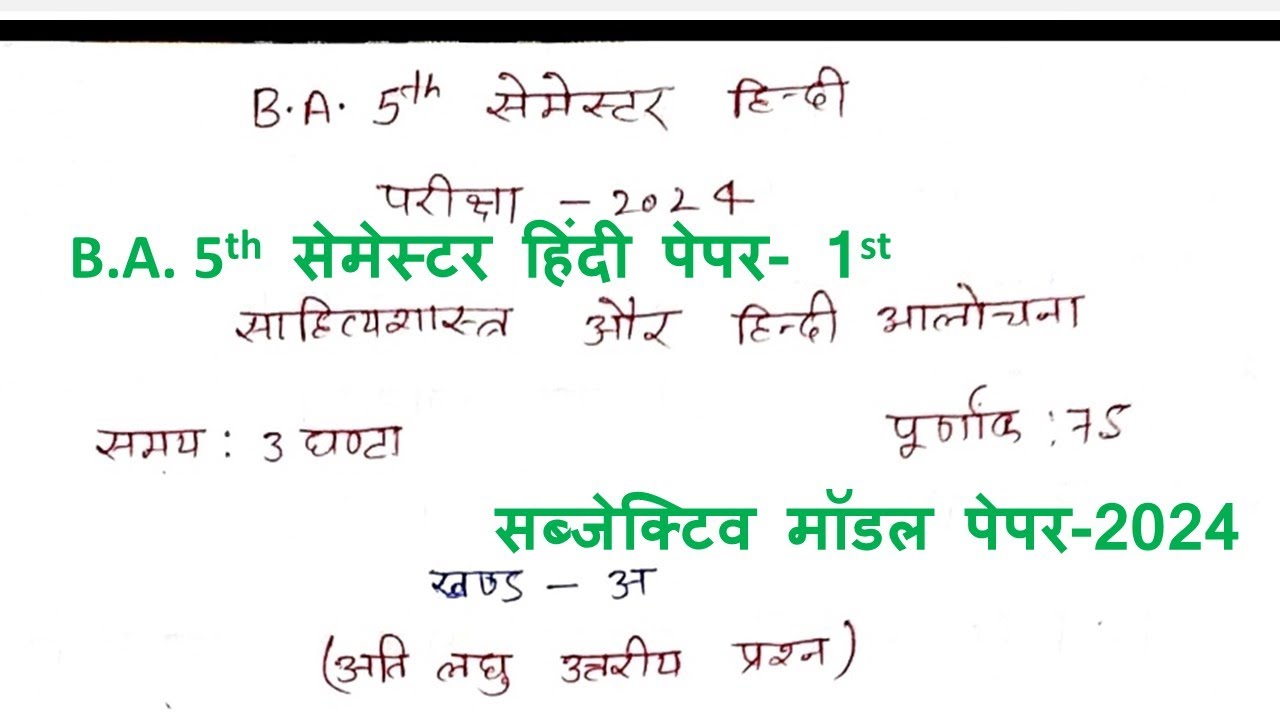 B.A. 5th सेमेस्टर हिन्दी
परीक्षा - 2024
B.A. 5th सेमेस्टर हिंदी पेपर- 1st
साहित्यशास्त्र और हिन्दी आलोचना
समय : 3 घण्टा
पूर्णांक : 75
सब्जेक्टिव मॉडल पेपर-2024
खण्ड - अ
(अति लघु उत्तरीय प्रश्न)